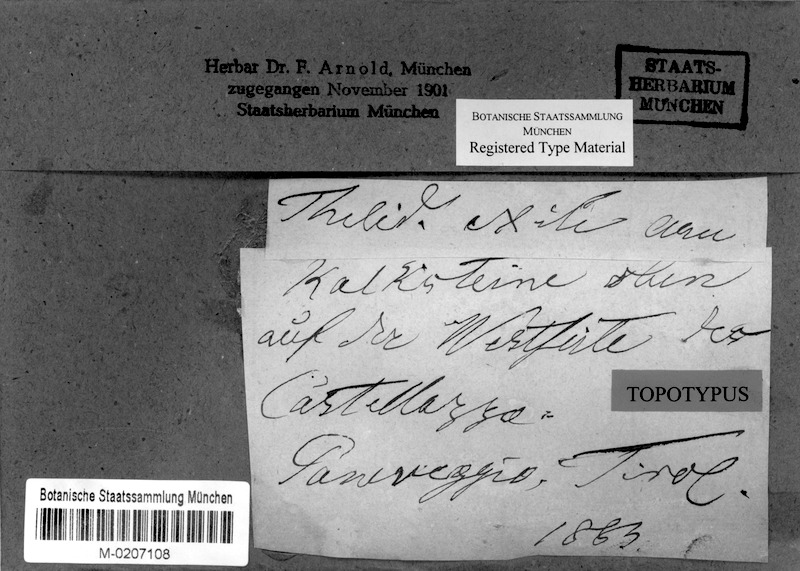 Herbar Dr. F. Arnold, München
zugegangen November 1901
Staatsherbarium München
STAATS-
HERBARIUM
MÜNCHEN
BOTANISCHE STAATSSAMMLUNG
MÜNCHEN
Registered Type Material
Thelid. exile arn
Kalksteine oben
auf der Westseite des
Castellazzo =
Paneveggio, Tirol.
1883.
TOPOTYPUS
Botanische Staatssammlung München
M-0207108